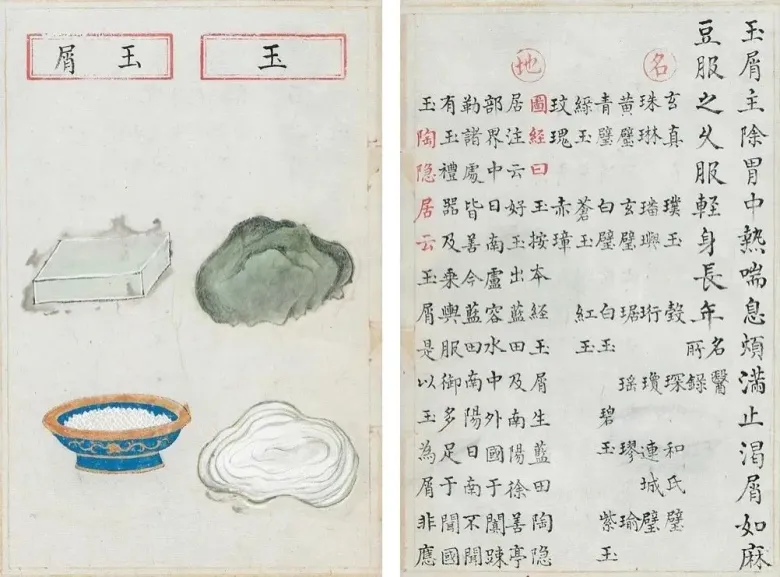 玉
玉屑
玉屑主除胃中熱喘息煩滿止渴屑如麻
豆服之久服軽身長年名醫所錄
名
玄真 璞玉 瑴 琛 和氏璧
珠琳 璠璵 珩 瓊 連城璧
黄璧 玄璧 琚 瑶 璆 瑜
青璧 白璧 白玉 碧玉 紫玉
綵玉 蒼玉 紅玉
玟瑰 赤璋
地
圖經曰玉按本經玉屑生藍田陶隐
居注云好玉出藍田及南陽徐善亭
部界中日南盧容水中外國于闐踈
勒諸處皆善今藍田南陽日南不聞
有玉禮器及乗輿服御多足于闐國
玉陶隐居云玉屑是以玉為屑非應